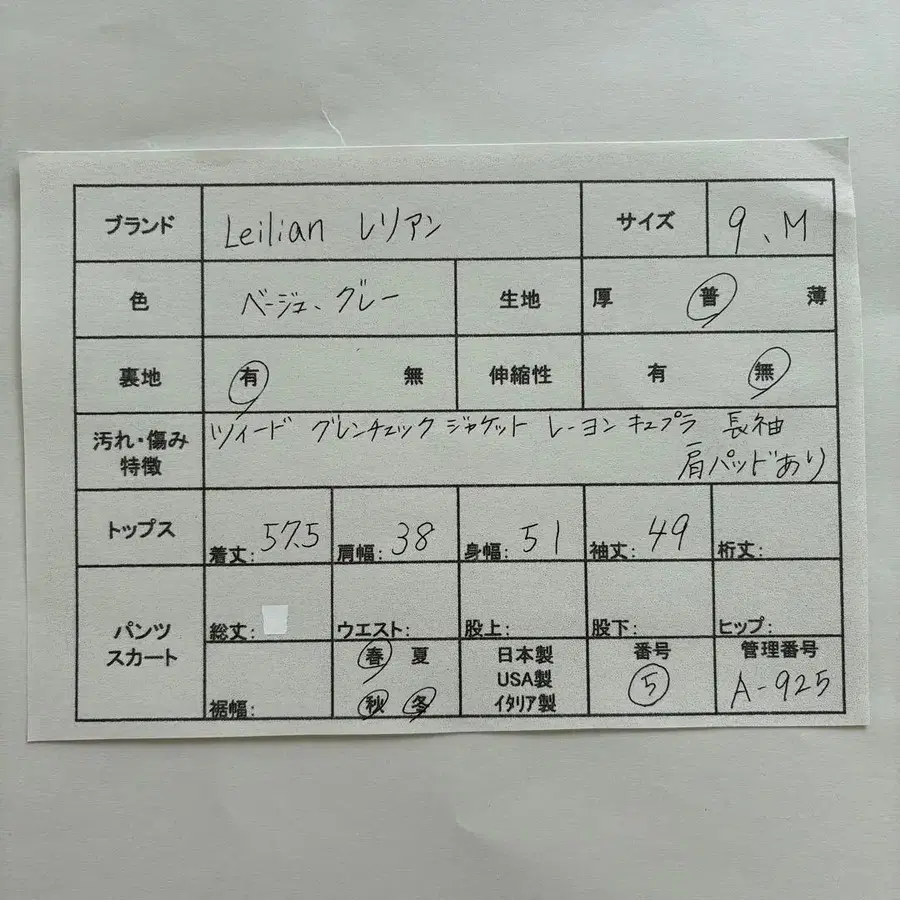 ブランド Leilian レリアン サイズ 9、M
色 ベージュ、グレー 生地 厚 普 薄
裏地 有 無 伸縮性 有 無
汚れ・傷み
特徴
ツイード グレンチェック ジャケット レーヨン キュプラ 長袖
肩パッドあり
トップス 着丈: 57.5 肩幅: 38 身幅: 51 袖丈: 49 裄丈:
パンツ
スカート
総丈: ウエスト: 股上: 股下: ヒップ:
裾幅:
春 夏
秋 冬
日本製
USA製
イタリア製
番号
5
管理番号
A-925